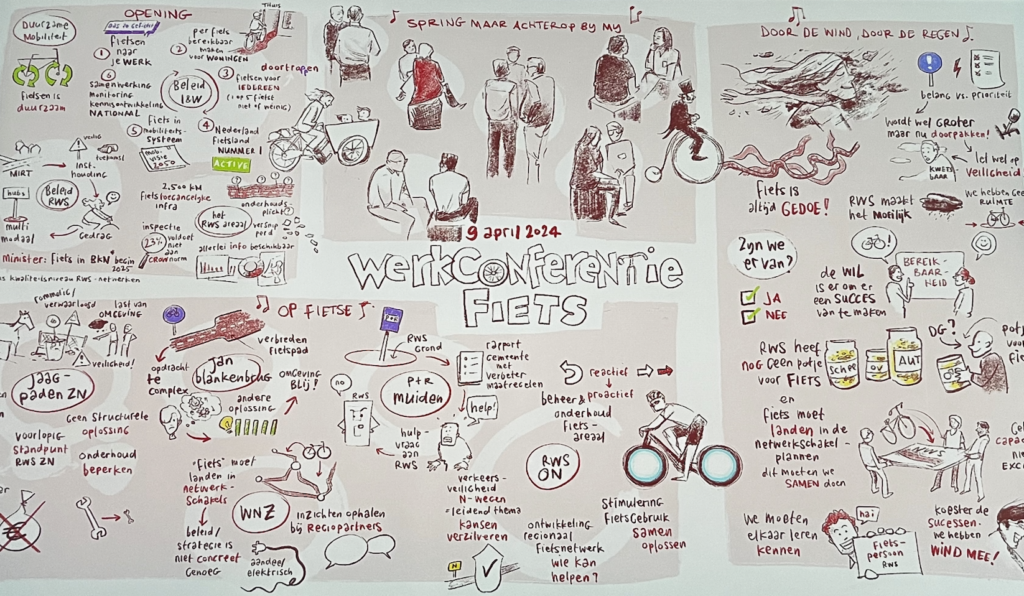 OPENING
Duurzame
Mobiliteit
fietsen is
duurzaam
1
fietsen
naar
je WERK
2
per fiets
bereikbaar
maken
voor WONINGEN
THUIS
doortrappen
3
fietsen voor
IEDEREEN
Beleid
I&W
6
samenwerking
monitoring
kennisontwikkeling
NATIONAAL
5
Fiets in
mobiliteits-
systeem
2050
4
Nederland
Fietsland
NUMMER 1
ACTIVE
MIRT
veilig
toekomst
inst-
houding
Beleid
RWS
hubs
multi
modaal
Gedrag
Minister: Fiets in BKN begin
2025
kwaliteitsniveau RWS-netwerken
2.500 KM
Fietstoegankelijke
infra
inspectie
23%
voldoet
niet
aan
CROWnorm
het
RWS areaal
onderhouds
plicht?
versnip
perd
allerlei info beschikbaar
SPRING MAAR ACHTEROP BY MY
9 april 2024
WERKCONFERENTIE
FIETS
DOOR DE WIND, DOOR DE REGEN
!
belang vs. prioriteit
wordt wel GROTER
maar nu doorpakken!
KWETS
BAAR
let wel op
VEILIGHEID
Fiets is
altijd GEDOE!
RWS maakt
het Moeilijk
we hebben
RUIMTE
Zijn we
er van?
JA
NEE
de WIL
is er om er
een SUCCES
van te maken
BEREIK-
BAAR-
HEID
RWS heef
nog geen potje
voor FIETS
SCHEE
OV
AUT
DG?
en
Fiets moet
landen in de
netwerkschakel-
plannen
dit moeten we
SAMEN doen
RWS
We moeten
elkaar leren
kennen
hai
Fiets-
persoon
RWS
koester de
sucessen.
we hebben
WIND MEE!
OP FIETSE
rommelig/
verwaarloosd
last van
OMGEVING
veiligheid!
JAAG-
PADEN ZN
geen structurele
oplossing
voorlopig
standpunt
RWS ZN
onderhoud
beperken
€
verbreden
fietspad
opdracht
te
complex
Jan
blankenbrug
OMGEVING
BLIJ!
andere
oplossing
"Fiets" moet
landen in
netwerk-
schakels
beleid/
strategie is
niet concreet
genoeg
WNZ
inzichten ophalen
bij Regiopartners
aandeel
elektrisch
RWS
Grond
P+R
Muiden
no
RWS
rapport
gemeente
met
verbeter
maatregelen
help!
hulp-
vraag
aan
RWS
reactief
proactief
beheer &
onderhoud
Fiets-
areaal
RWS
ON
verkeers-
veiligheid
N-wegen
=leidend thema
kansen
verzilveren
N
ontwikkeling
regionaal
Fietsnetwerk
wie kan
helpen?
Stimulering
Fietsgebruik
Samen
oplossen